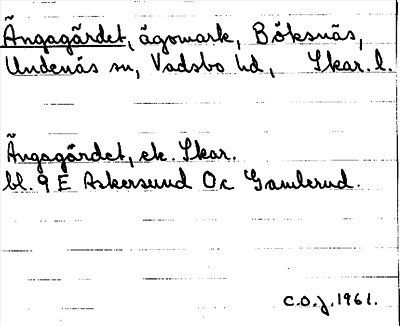 Ängagärdet, ägomark, Böksnäs,
Undenäs sn, Vadsbo hd, Skar. l.
Ängagärdet, ek. Skar.
bl. 9 E Askersund Oc Gamlerud.
C.O.J. 1961.